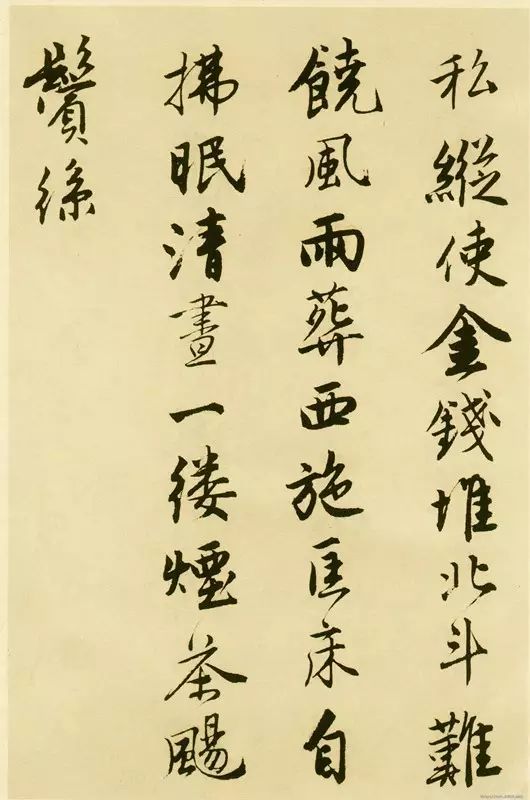 私縱使金錢堆北斗難
饒風雨葬西施匡床自
拂眠清晝一縷煙茶颺
鬢絲